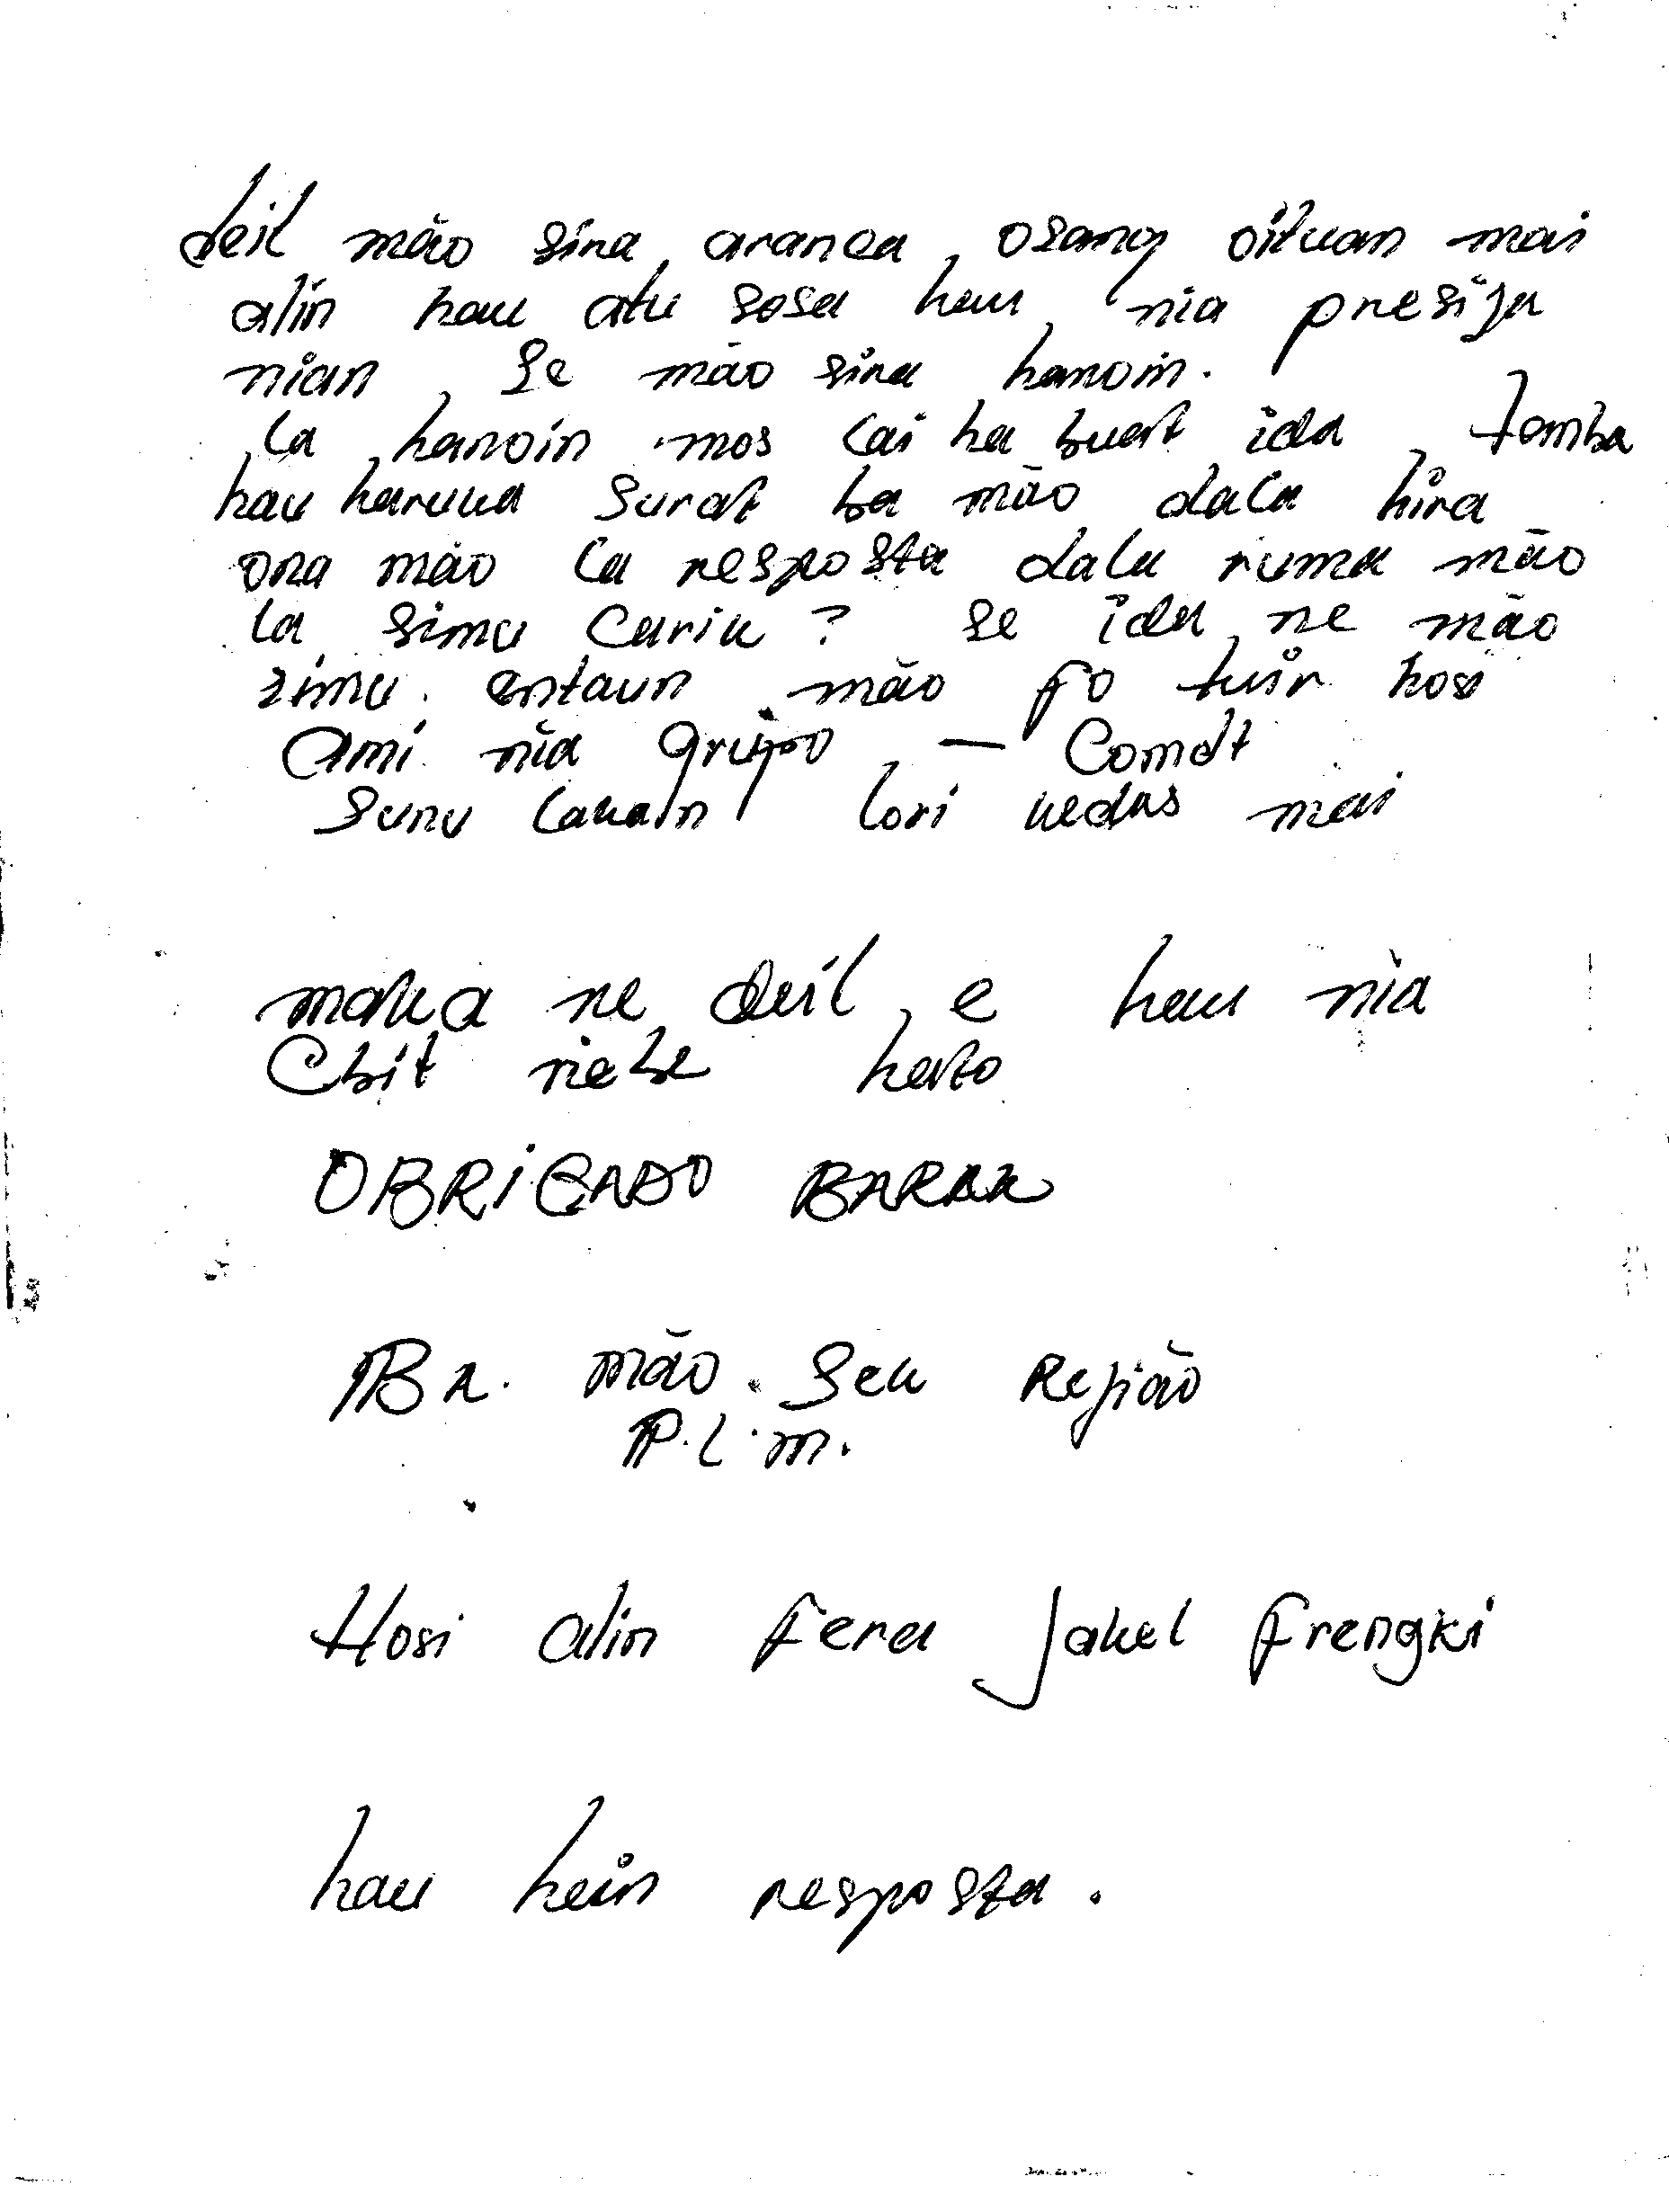 deil mão sira aranca, osang oituan mai
alin hau atu sosa hau nia presiza
nian, Se mão sira hanoin.
la hanoin mos lai ha buat ida, tamba
hau haruca surat ba mão dala hira
ona mão la resposta dala ruma mão
la simu cariu? se ida ne mão
simu. entaun mão fo tuir hosi
Ami nia grupo — Comdt
Sunu Lakan lori kedas mai
maka ne deil, e hau nia
Cbit nebe hato
OBRIGADO BARAK
BA. mão. Seu Rejião
P.L.M.
Hosi alin Fera Jakel Frengki
hau hein resposta.